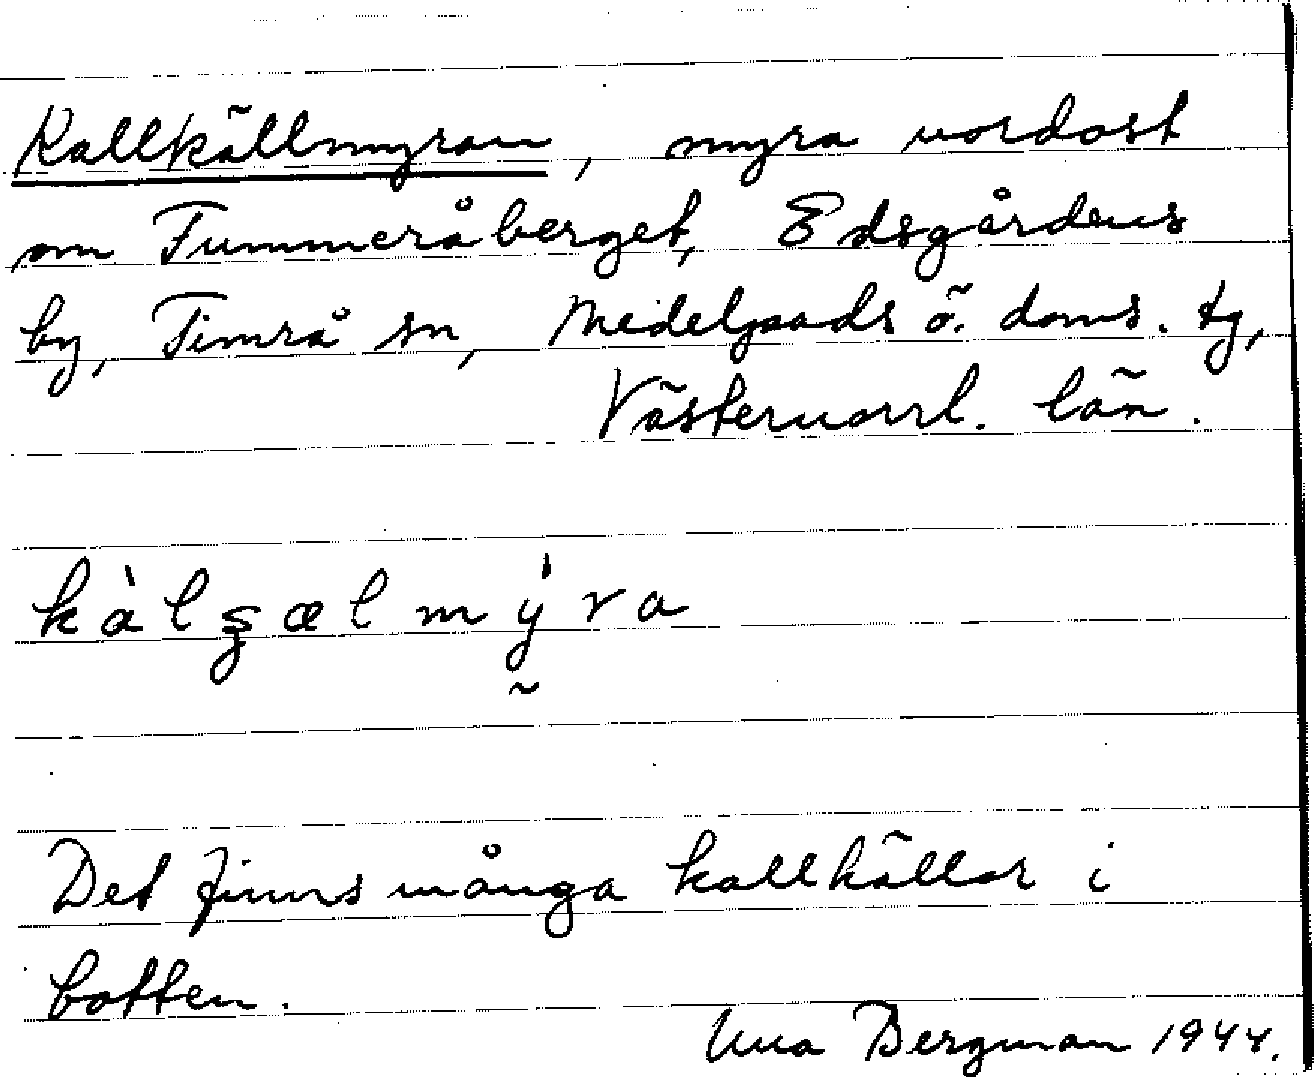 Kallkällmyran, myra nordost
om Tummeråberget, Edsgårdens
by, Timrå sn, Medelpads ö. doms. tg,
Västernorrl. län.
kàlʂælmý̰ra
Det finns många kallkällor i
botten.
Una Bergman 1944.